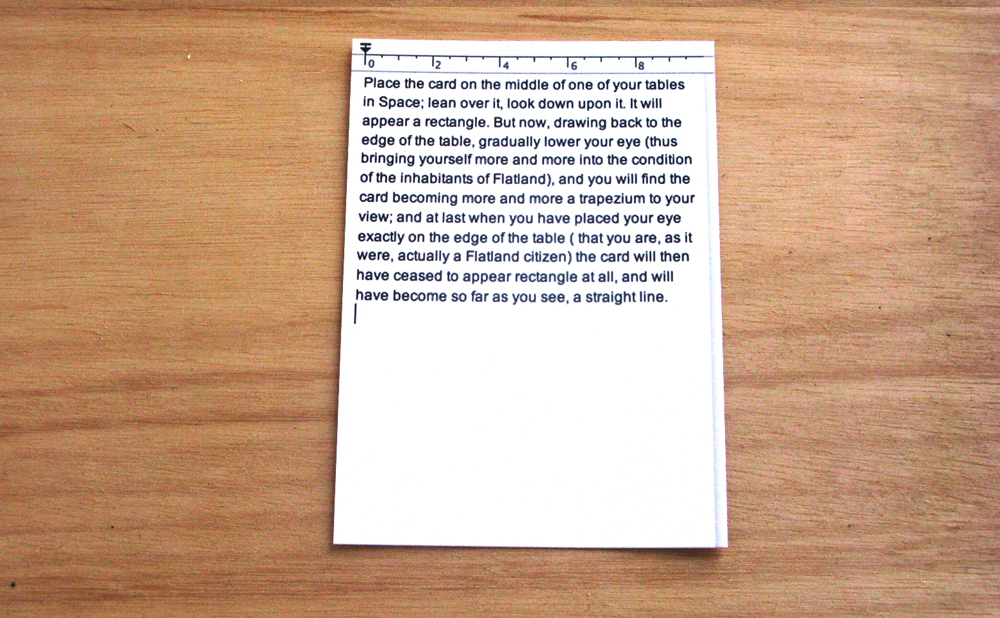 0 2 4 6 8
Place the card on the middle of one of your tables
in Space; lean over it, look down upon it. It will
appear a rectangle. But now, drawing back to the
edge of the table, gradually lower your eye (thus
bringing yourself more and more into the condition
of the inhabitants of Flatland), and you will find the
card becoming more and more a trapezium to your
view; and at last when you have placed your eye
exactly on the edge of the table ( that you are, as it
were, actually a Flatland citizen) the card will then
have ceased to appear rectangle at all, and will
have become so far as you see, a straight line.